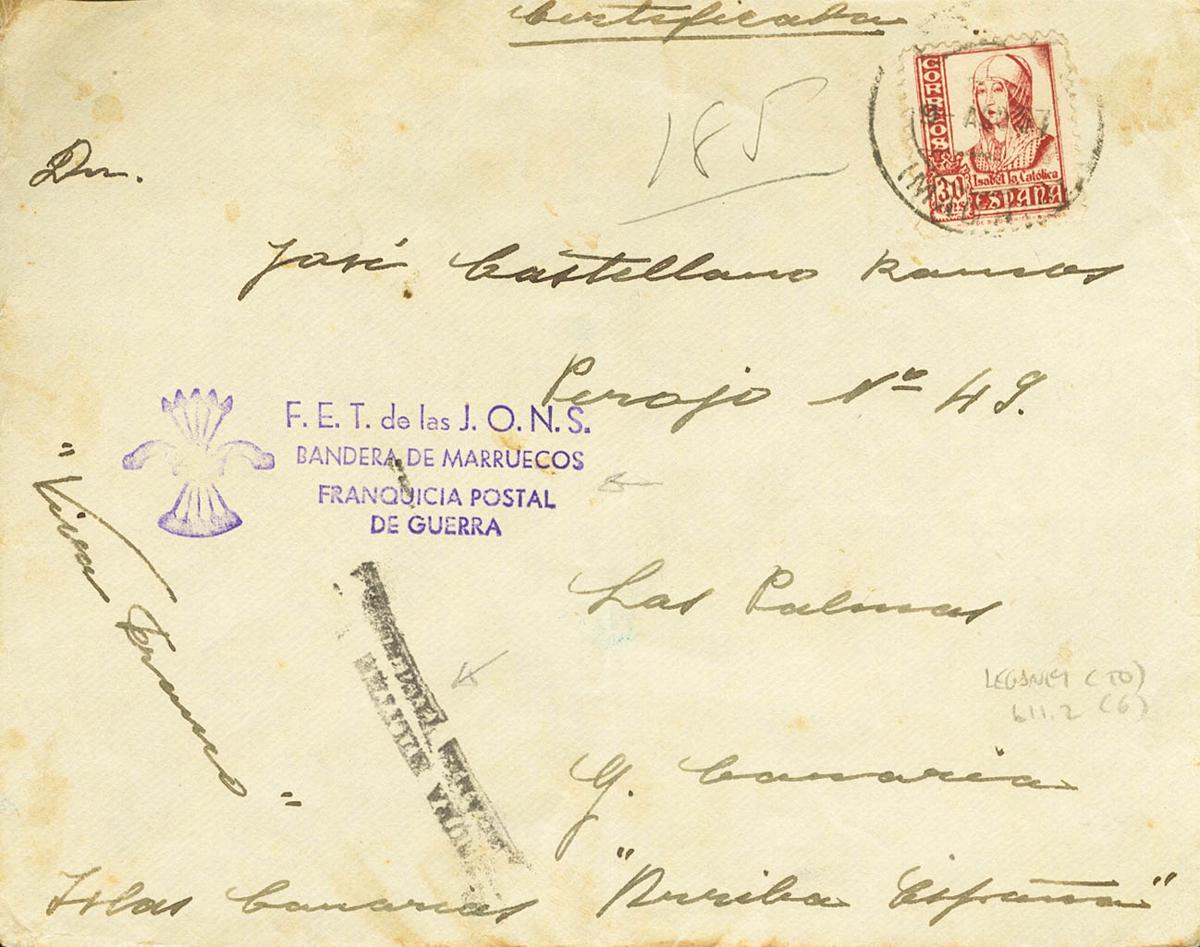 Certificada
CORREOS
30
CTS
Isabel la Católica
ESPAÑA
185
Dn.
José Castellano Ramos
Perojo Nº 49.
F. E. T. de las J. O. N. S.
BANDERA DE MARRUECOS
FRANQUICIA POSTAL
DE GUERRA
"Viva Franco"
Las Palmas
G. Canaria
CENSURA MILITAR
Islas Canarias "Arriba España"